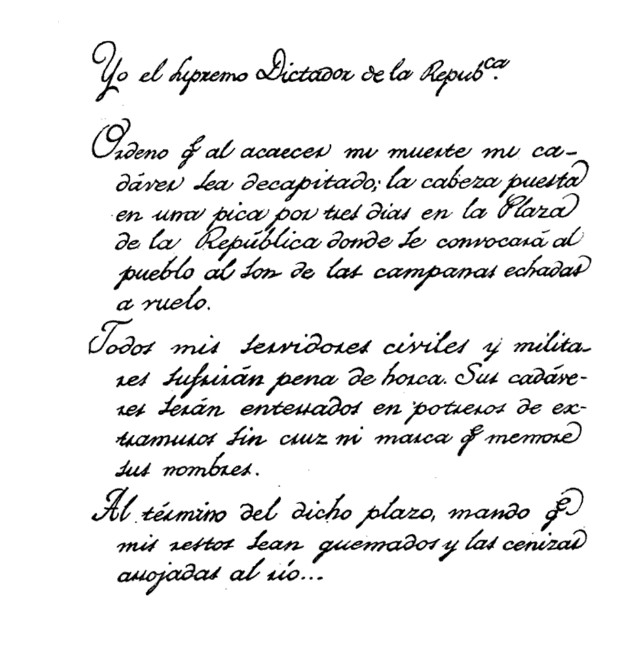 Yo el Supremo Dictador de la Repub^ca.
Ordeno q^e al acaecer mi muerte mi ca-
dáver sea decapitado; la cabeza puesta
en una pica por tres días en la Plaza
de la República donde se convocará al
pueblo al son de las campanas echadas
a vuelo.
Todos mis servidores civiles y milita-
res sufrirán pena de horca. Sus cadáve-
res serán enterrados en potreros de ex-
tramuros sin cruz ni marca q^e memore
sus nombres.
Al término del dicho plazo, mando q^e
mis restos sean quemados y las cenizas
arrojadas al río...